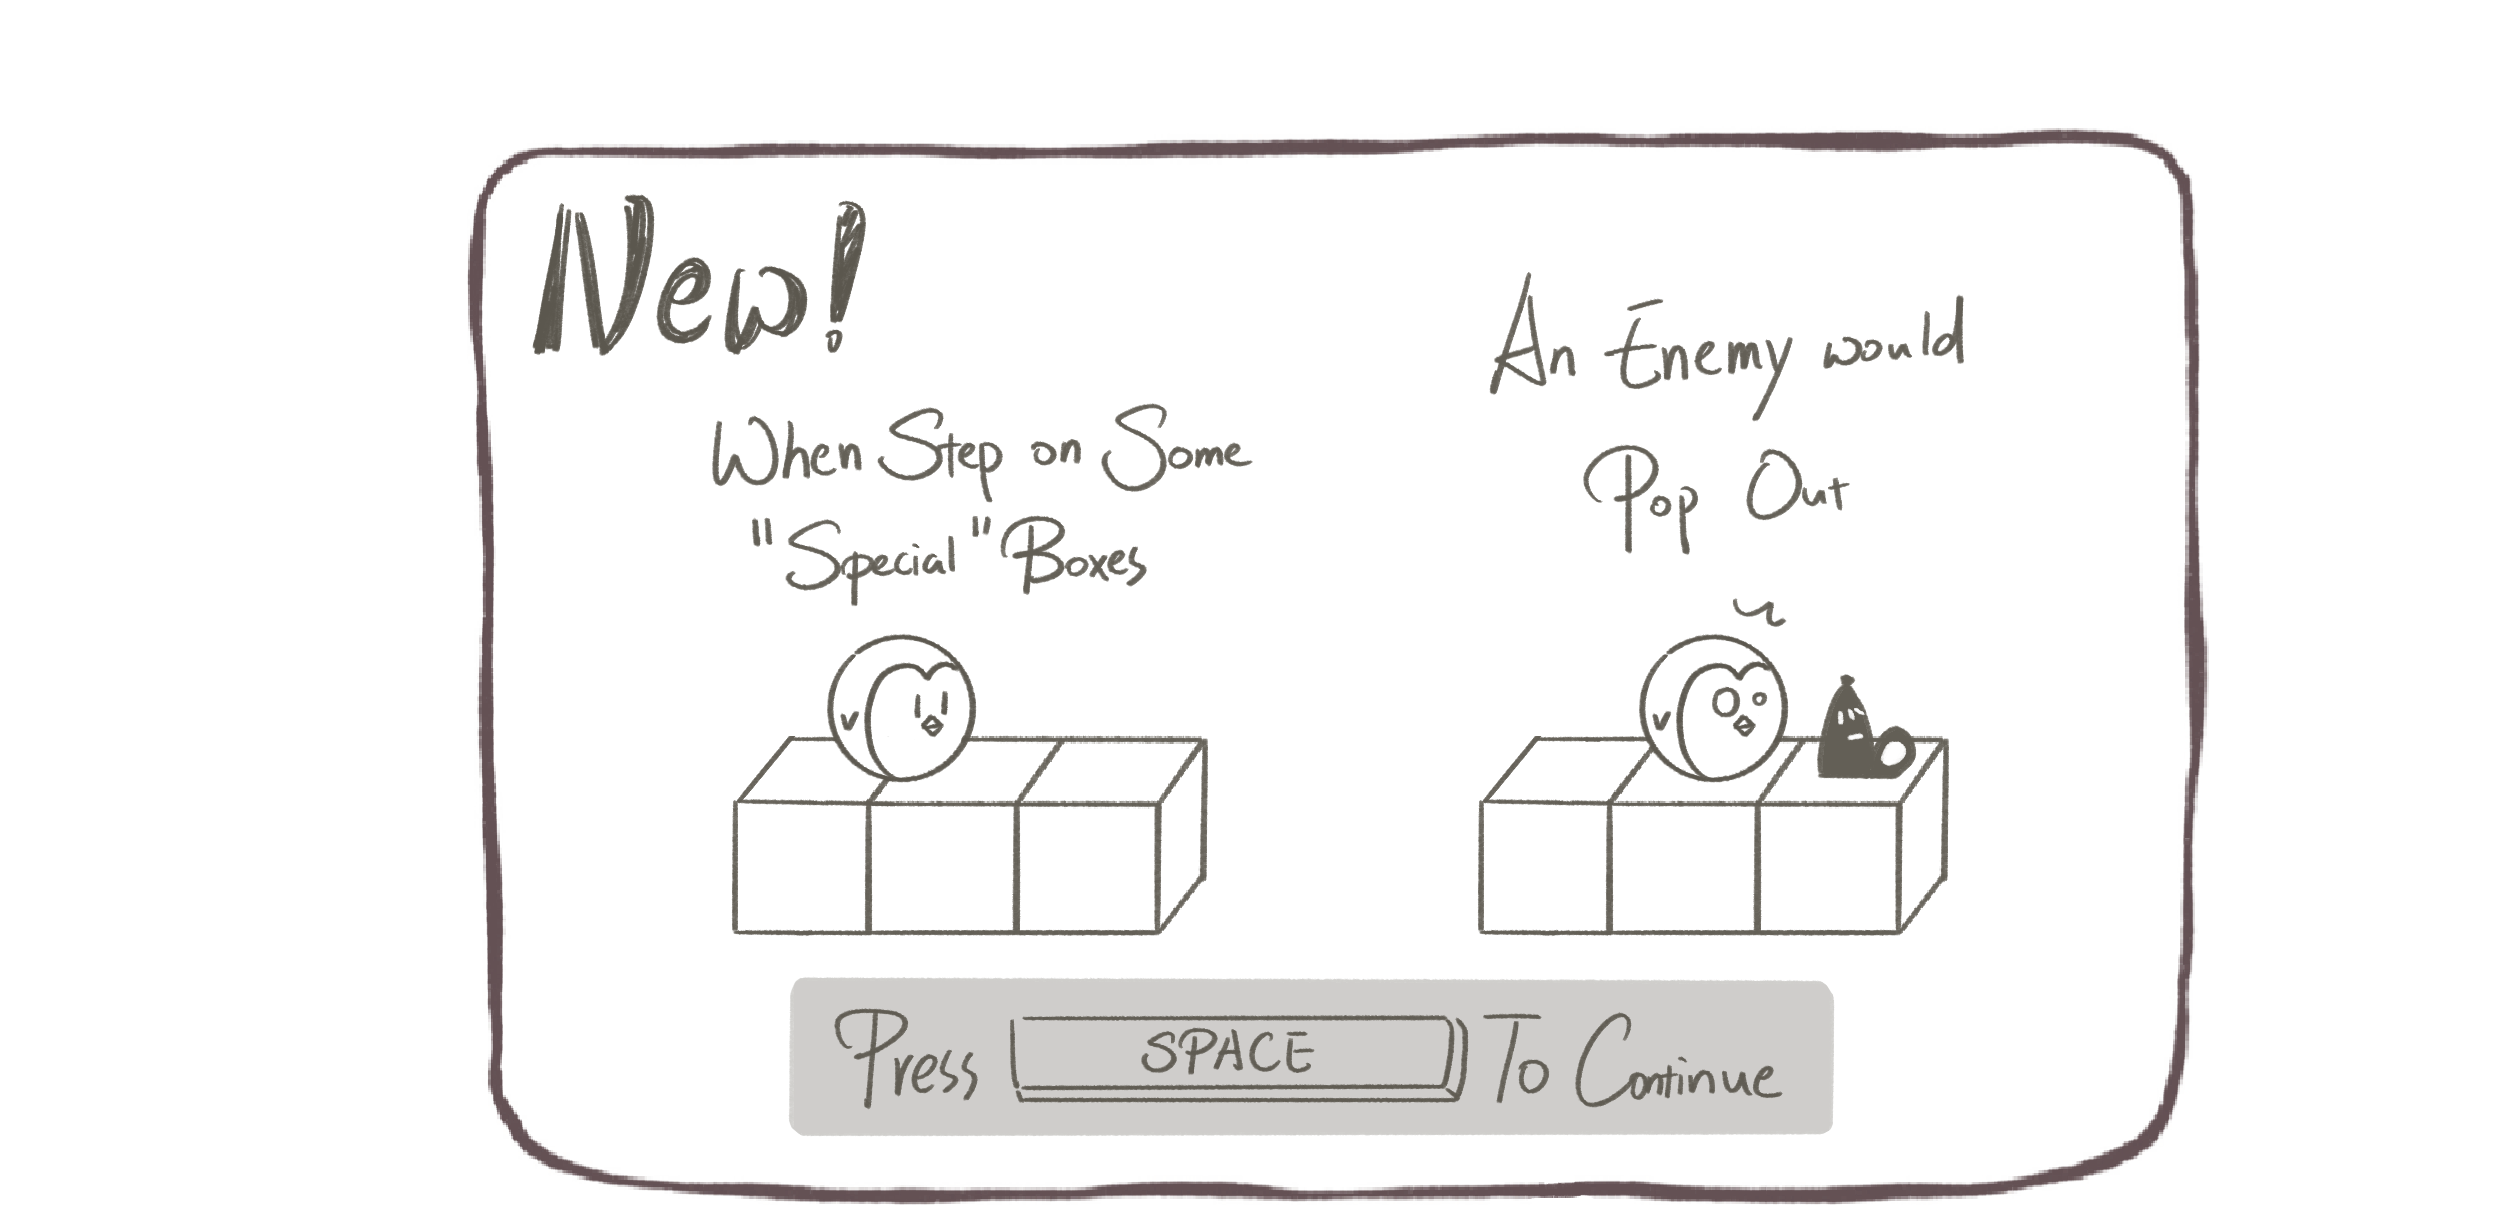 New!
When Step on Some
"Special" Boxes
An Enemy would
Pop Out
Press SPACE To Continue